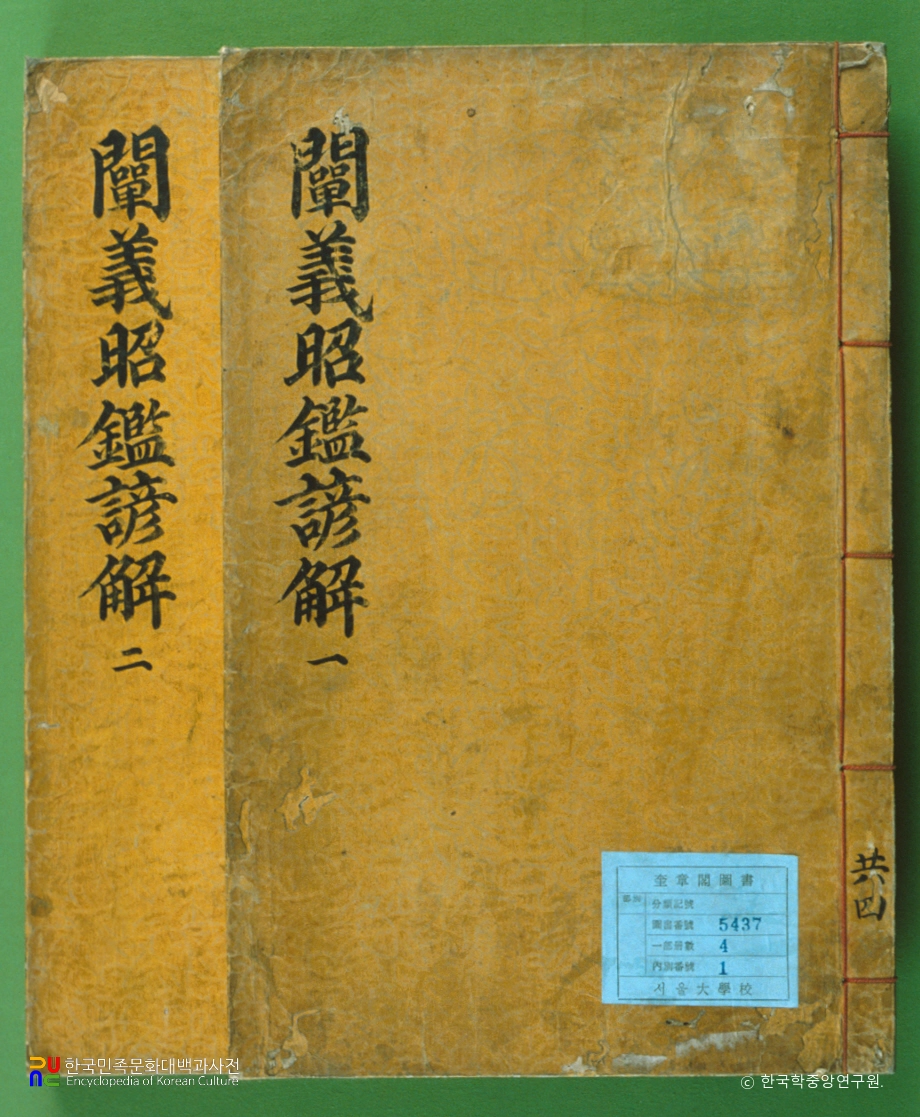 闡義昭鑑諺解 一
闡義昭鑑諺解 二
共四
奎章閣圖書
分類記號
圖書番號 5437
一部冊數 4
內別番號 1
서울大學校
한국민족문화대백과사전
Encyclopedia of Korean Culture
ⓒ 한국학중앙연구원.